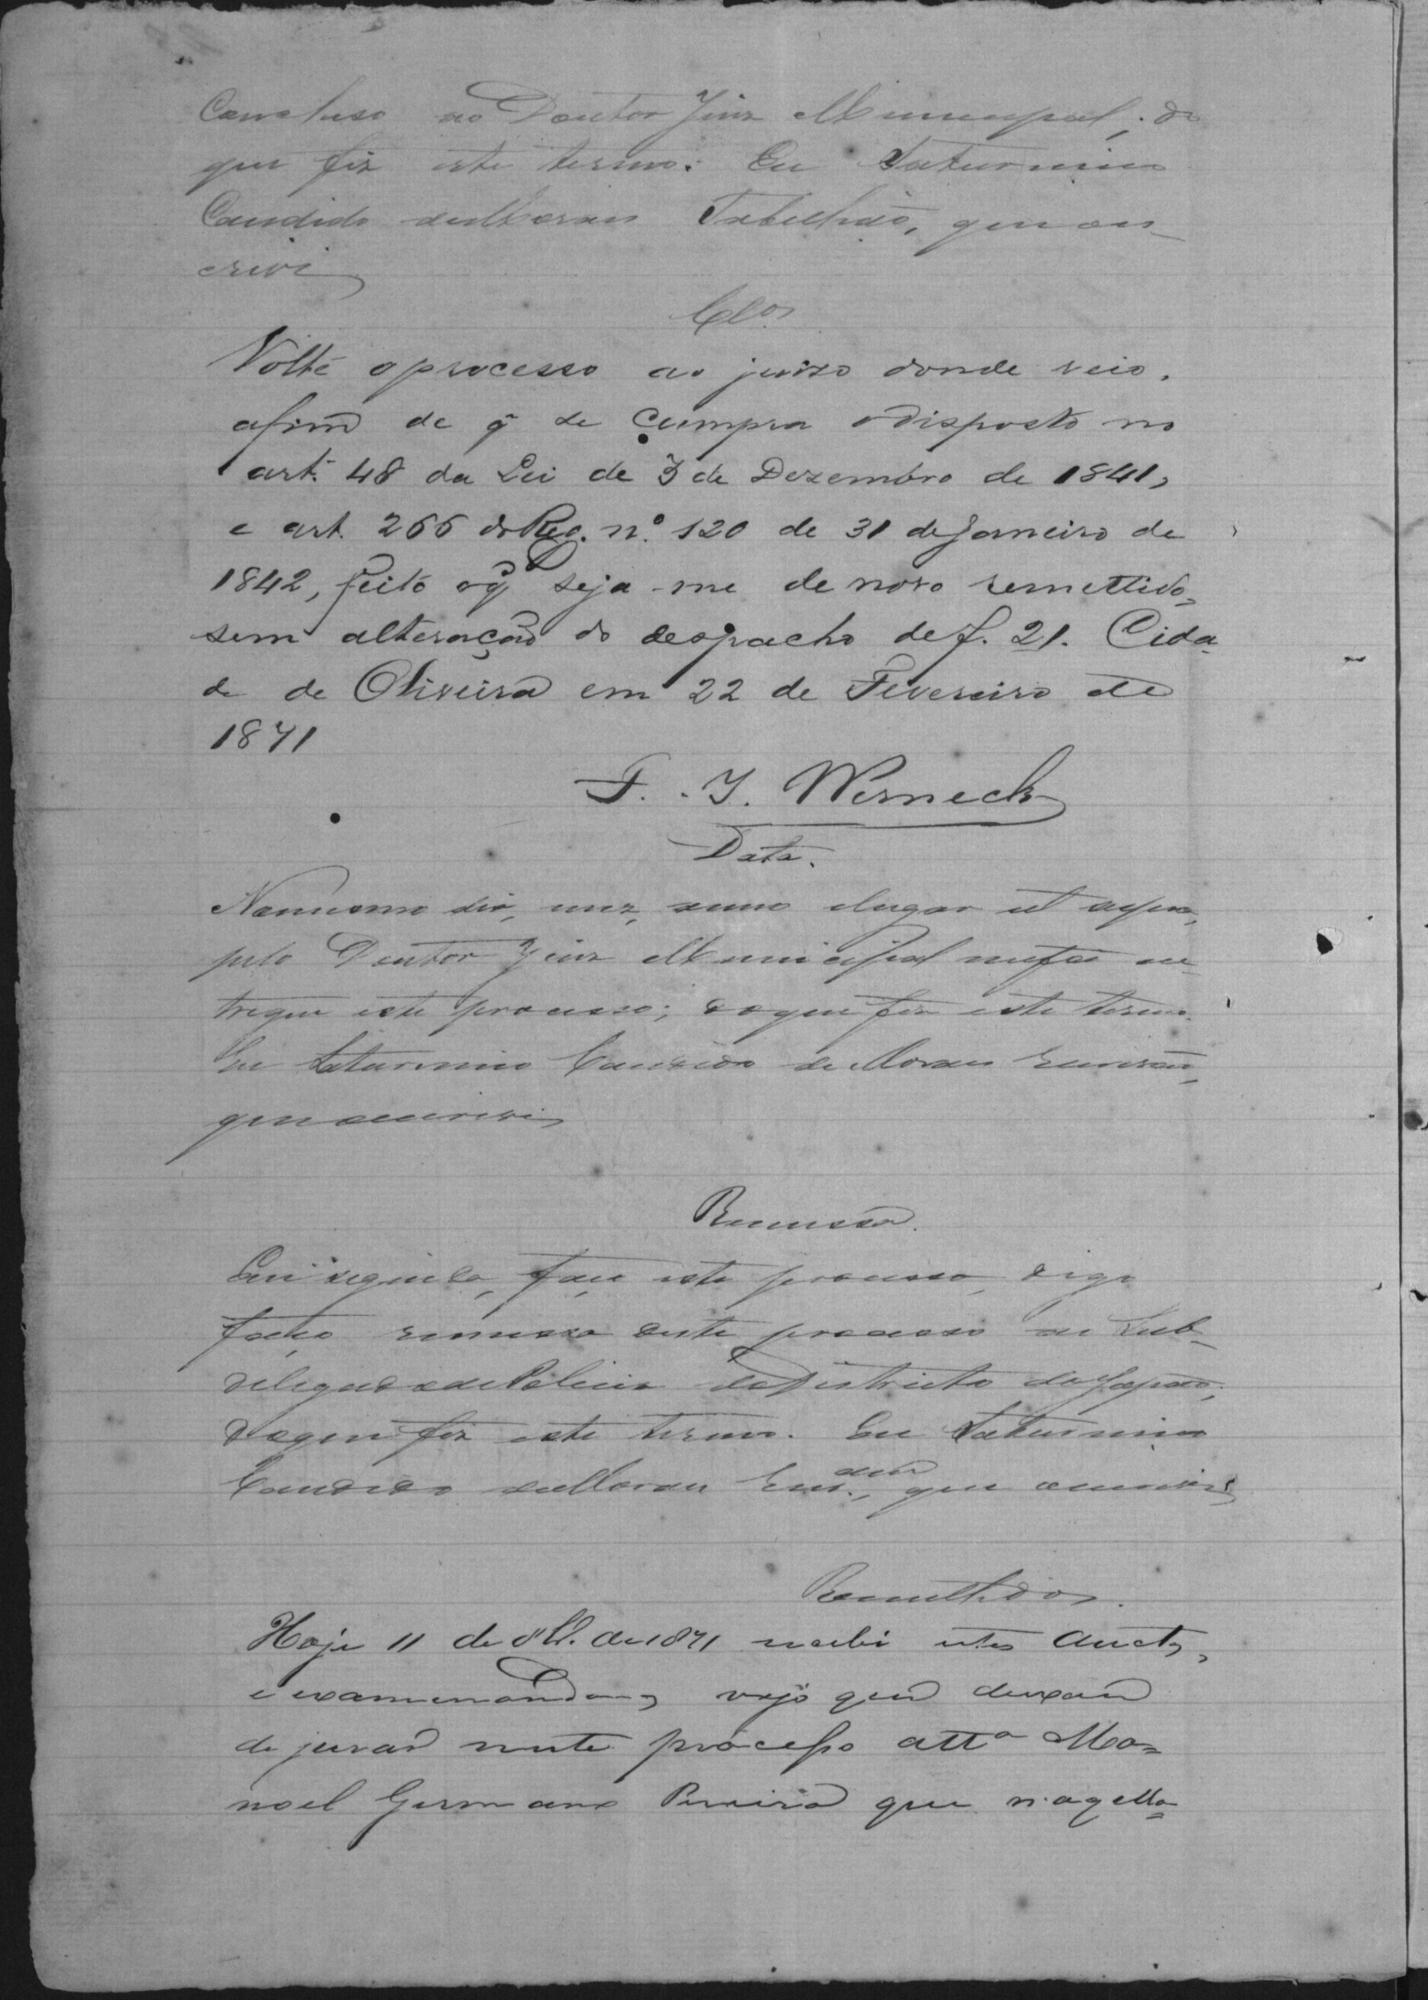 Concluso ao Doutor Juiz Municipal; do
que fiz este termo. Eu Saturnino
Candido de Moraes Tabelliaõ, que es-
crevi
Clos
Volte o processo ao juizo donde veio,
afim de q̃ se cumpra o disposto no
art. 48 da Lei de 3 de Dezembro de 1841,
e art. 266 do Reg. nº 120 de 31 de Janeiro de
1842, feito oq̃ seja-me de novo remettido,
sem alteração do despacho de f. 21. Cida-
de de Oliveira em 22 de Fevereiro de
1871
F. J. Werneck
Data.
No mesmo dia, mez, anno e lugar ut supra,
pelo Doutor Juiz Municipal me foi en-
tregue este processo; do que fiz este termo.
Eu Saturnino Candido de Moraes Escrivaõ,
que escrevi
Remessa.
Em seguida, faço este processo, digo
faço remessa deste processo ao Sub-
delegado de Policia do Districto do Japaõ;
do que fiz este termo. Eu Saturnino
Candido de Moraes Escam., que escrevi
Remettidos.
Hoje 11 de de 1871 recebi estes Auctos,
e examinandoos, vejo que deixou
de jurar neste processo a tta Ma=
noel Germano Pereira que n'aquella=